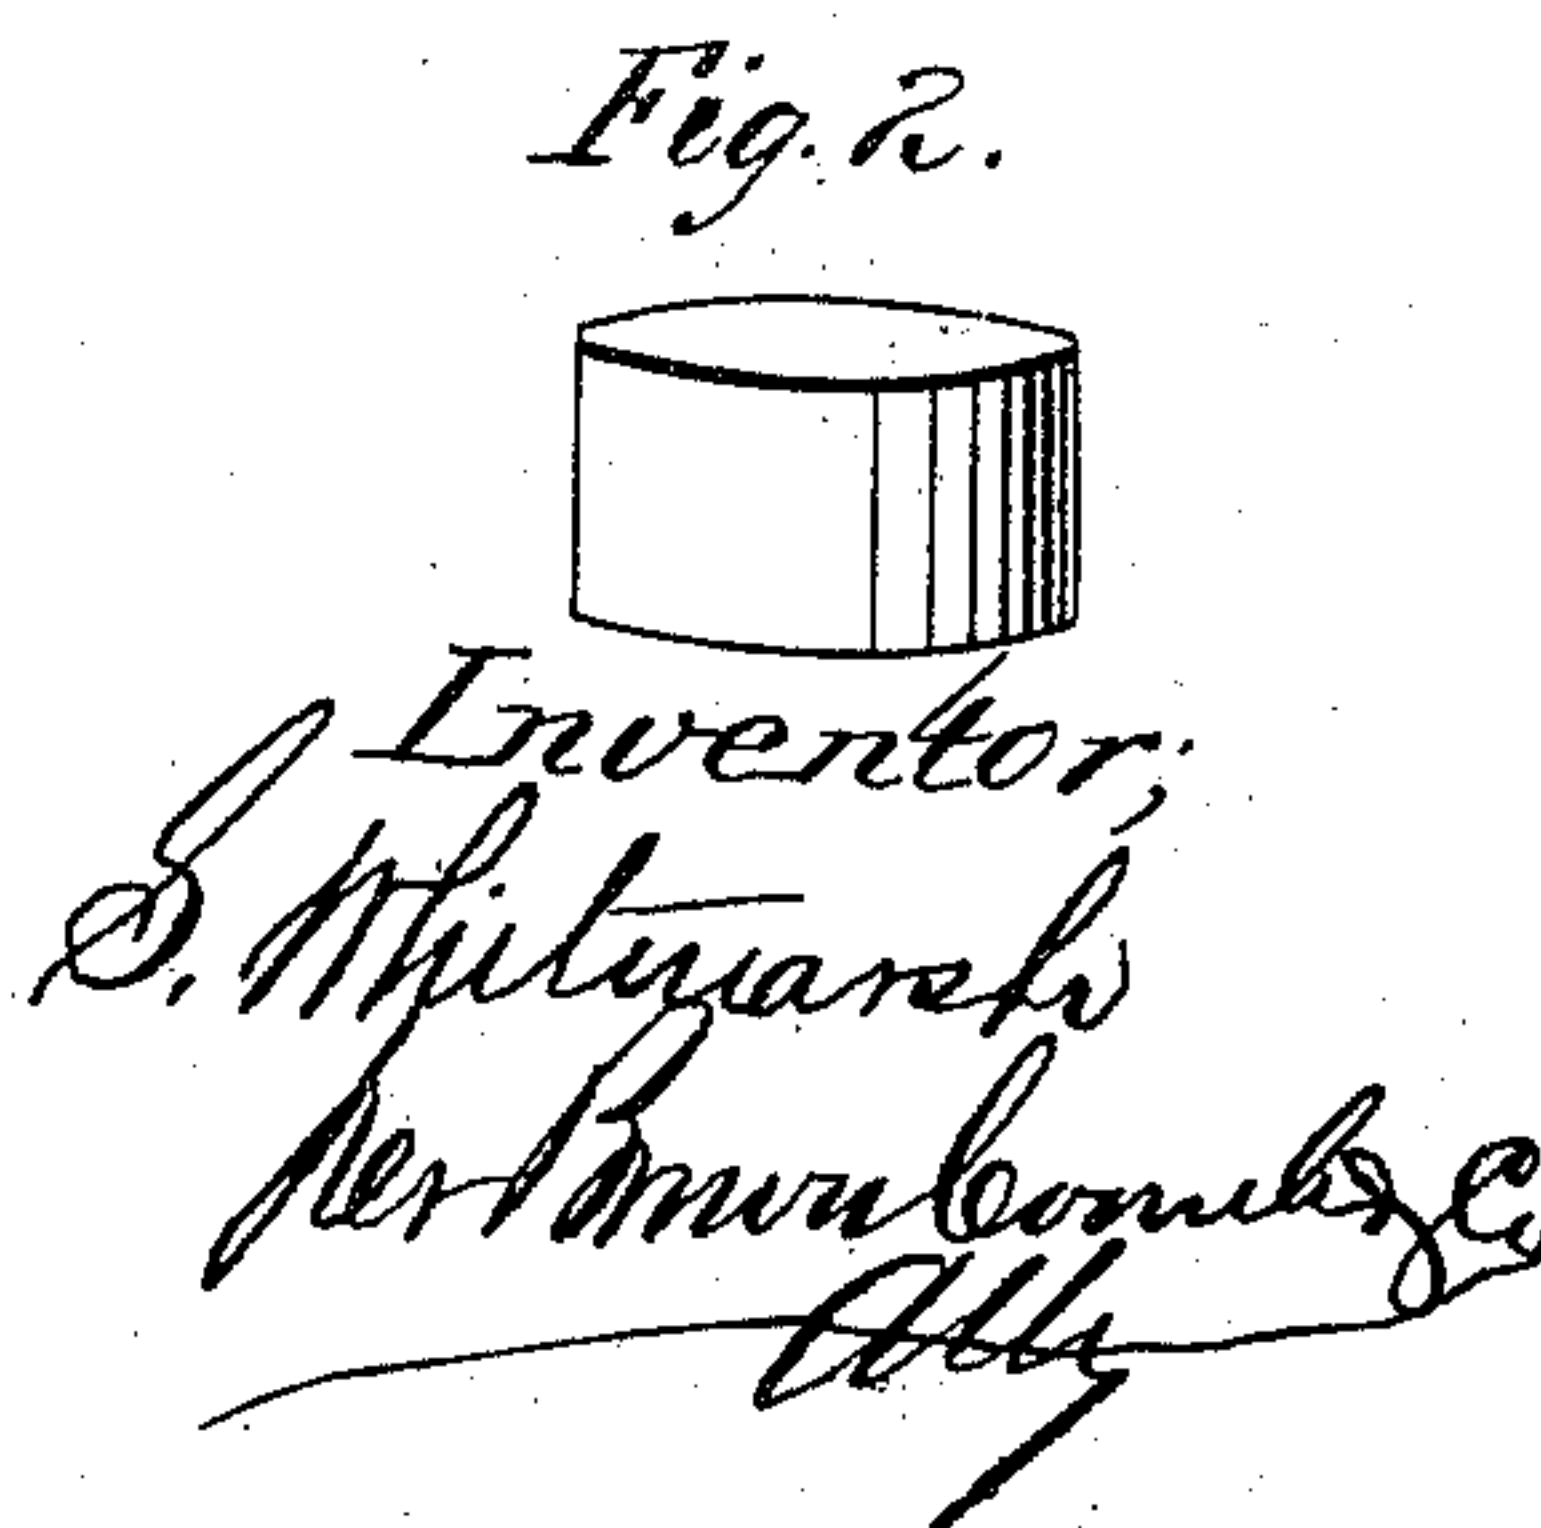 Fig. 2.
Inventor;
S. Whitmarsh
Per Brown Coombs & Co
Atty